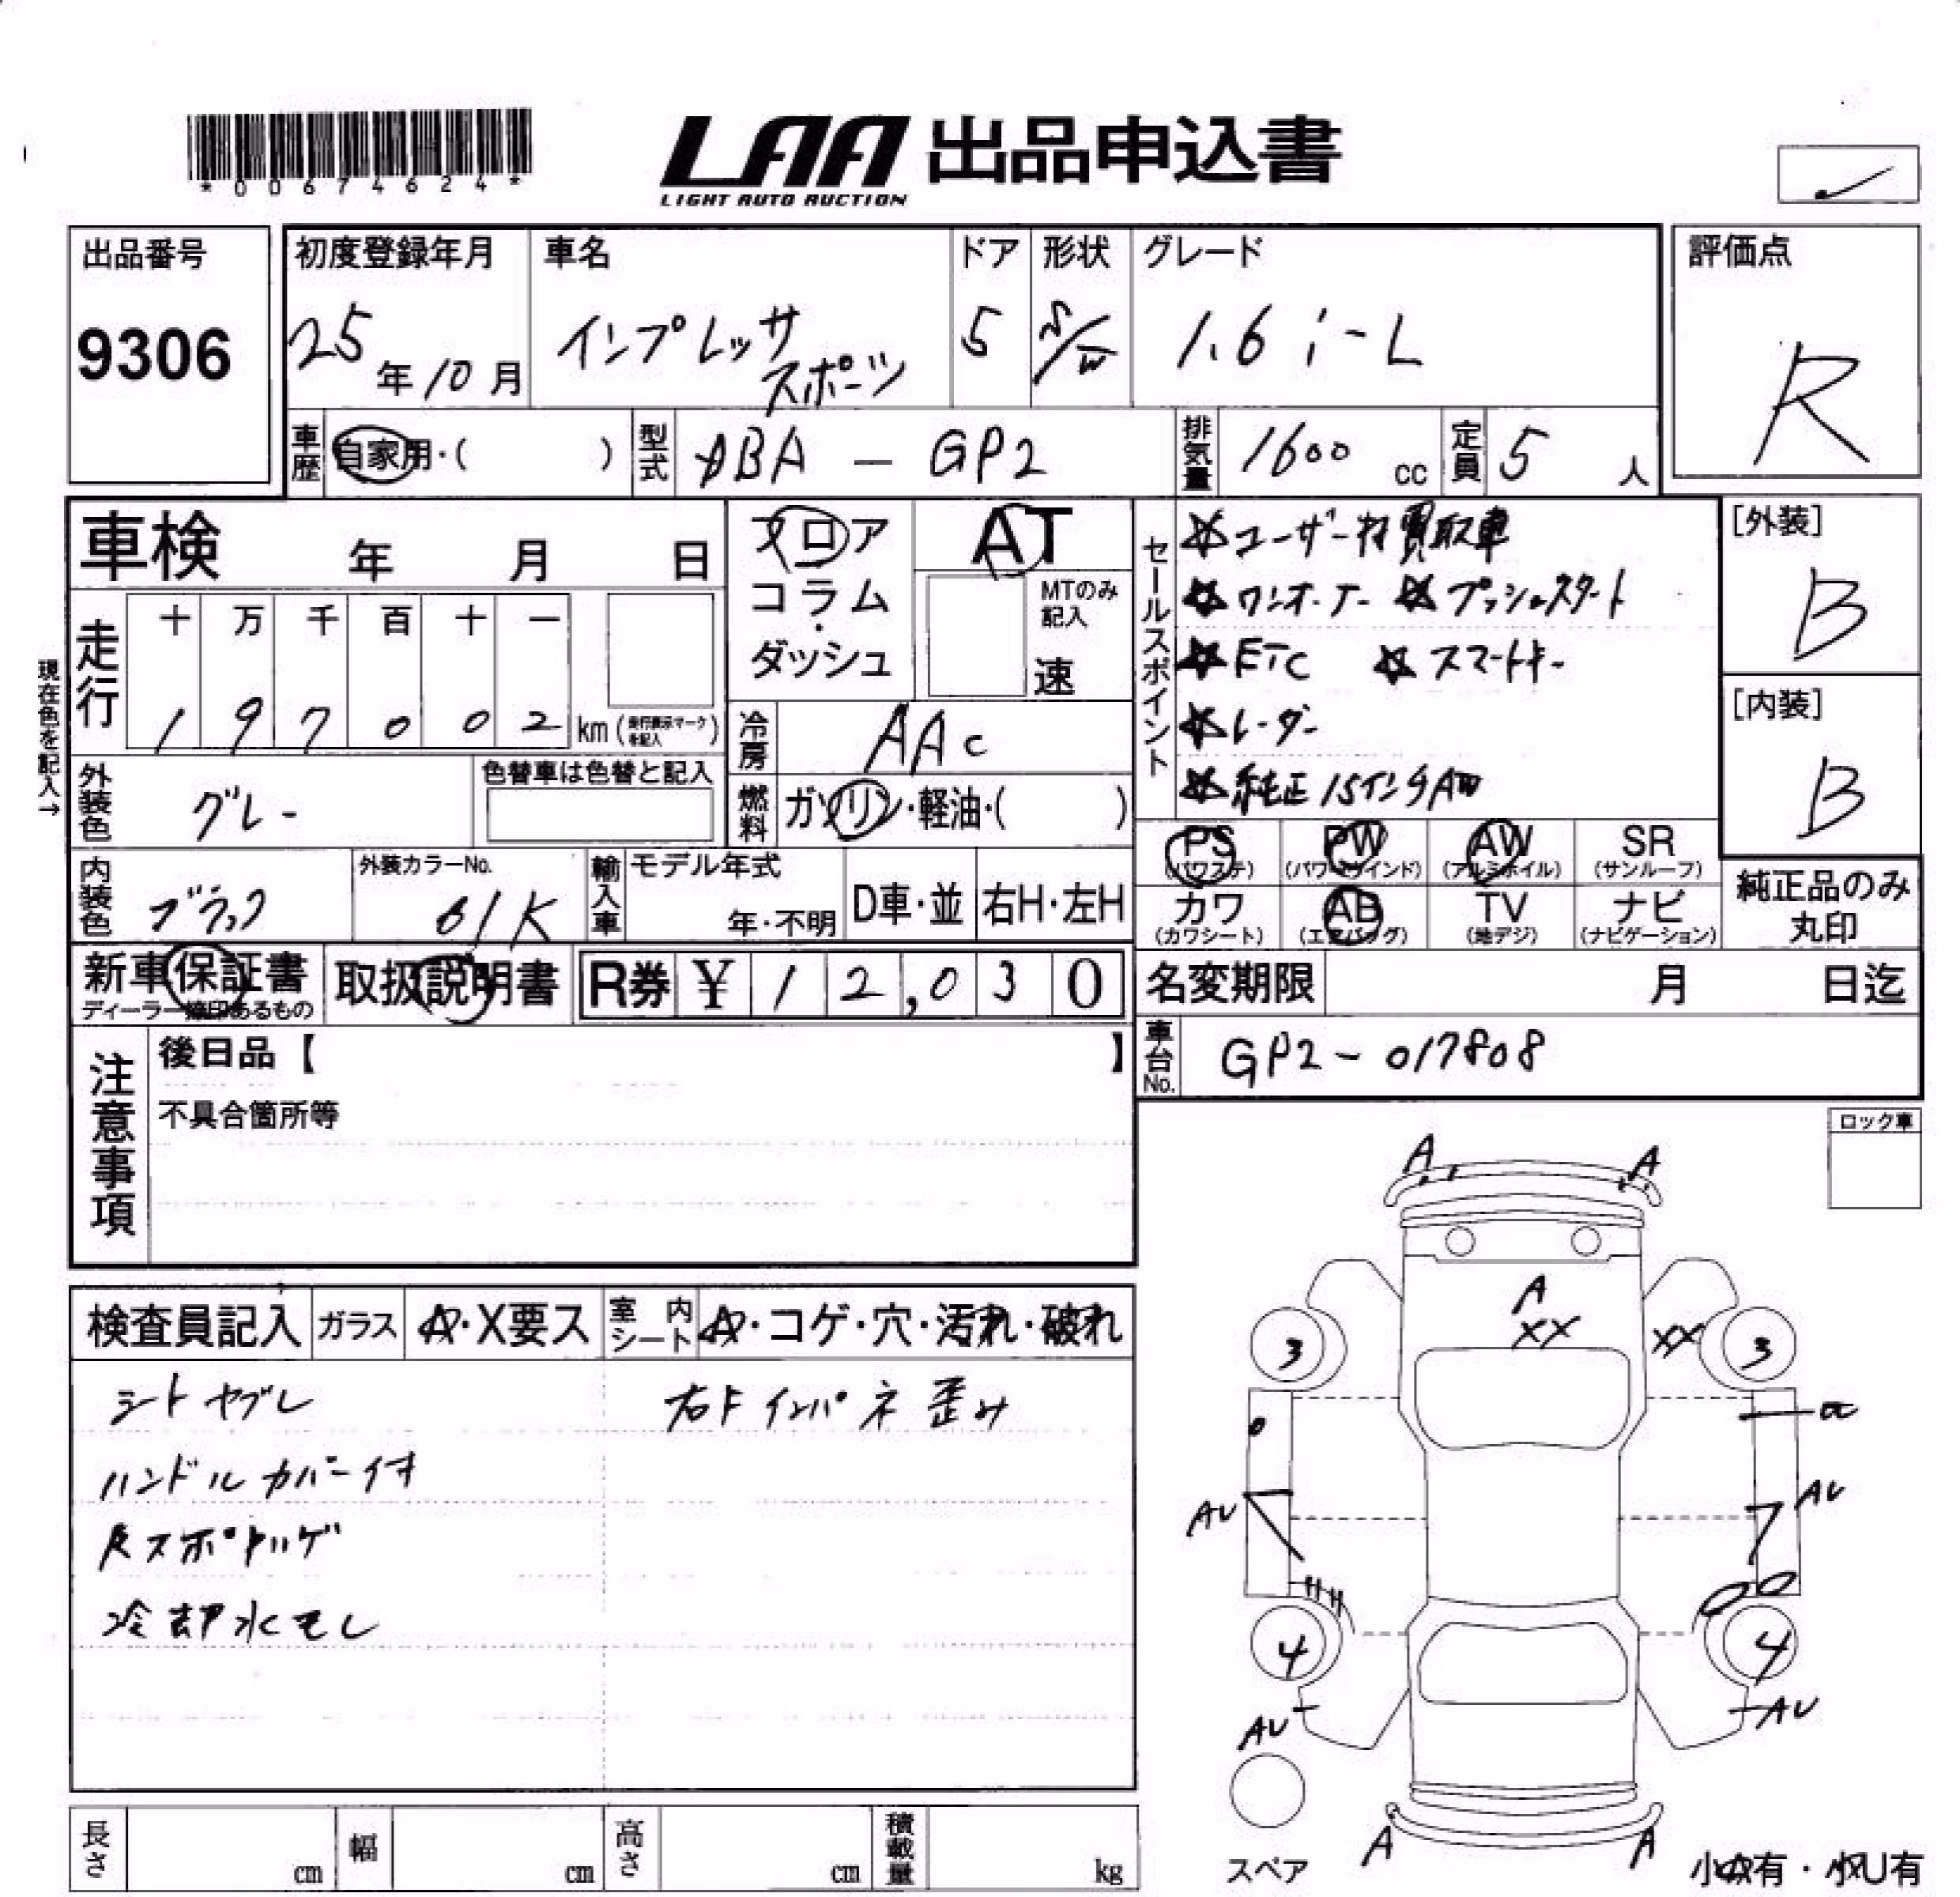 *00674624*
LAA 出品申込書
LIGHT AUTO AUCTION
出品番号
9306
初度登録年月
25年10月
車名
インプレッサ
スポーツ
ドア
5
形状
S/W
グレード
1.6 i-L
評価点
R
車歴
自家用・( )
型式
DBA - GP2
排気量
1600 cc
定員
5 人
車検 年 月 日
フロア
コラム
・
ダッシュ
AT
MTのみ
記入
速
セールスポイント
☆ユーザー様買取車
☆ワンオーナー ☆プッシュスタート
☆ETC ☆スマートキー
☆レーダー
☆純正15インチAW
[外装]
B
[内装]
B
現在色を記入→
走行
十 万 千 百 十 一
1 9 7 0 0 2 km (走行表示マークを記入)
冷房
AAC
外装色
グレー
色替車は色替と記入
燃料
ガソリン・軽油・( )
PS (パワステ)
PW (パワーウインド)
AW (アルミホイル)
SR (サンルーフ)
カワ (カワシート)
AB (エアバッグ)
TV (地デジ)
ナビ (ナビゲーション)
純正品のみ
丸印
内装色
ブラック
外装カラーNo.
61K
輸入車
モデル年式
年・不明
D車・並
右H・左H
新車保証書
ディーラー捺印あるもの
取扱説明書
R券 ¥ 1 2,0 3 0
名変期限 月 日迄
注意事項
後日品【 】
不具合箇所等
車台No.
GP2-017808
ロック車
検査員記入
ガラス
A・X要ス
室内シート
A・コゲ・穴・汚れ・破れ
シートヤブレ
右Fインパネ歪み
ハンドルカバー付
冷却水モレ
A A
A
XX XX
3 3
AU AU
4 4
AU AU
A A
スペア
小A有・小U有
長さ cm
幅 cm
高さ cm
積載量 kg